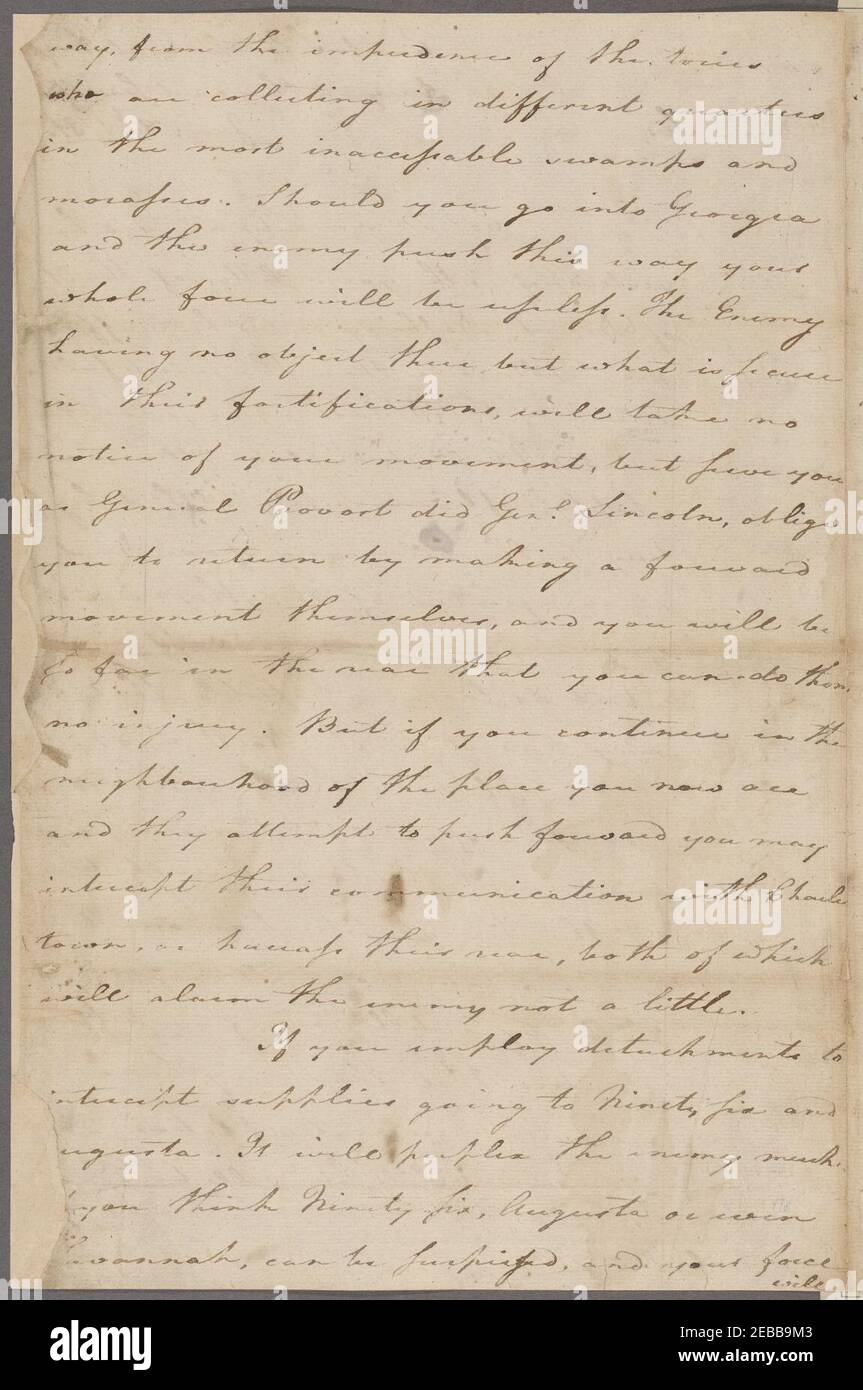 way, from the impudence of the tories
who are collecting in different quarters
in the most inaccessable swamps and
morasses. Should you go into Georgia
and the enemy push this way your
whole force will be useless. The Enemy
having no object there but what is secure
in their fortifications, will take no
notice of your movement, but serve you
as General Provost did Genl. Lincoln, oblige
you to return by making a forward
movement themselves, and you will be
so far in the rear that you can do them
no injury. But if you continue in the
neighbourhood of the place you now are
and they attempt to push forward you may
intercept their communication with Charles
town, or harrass their rear, both of which
will alarm the enemy not a little.
If you employ detachments to
intercept supplies going to Ninety six and
ugusta. It will perplex the enemy much.
you think Ninety Six, Augusta or even
avannah, can be surprised, and your force
will
alamy
Image ID: 2EBB9M3
www.alamy.com